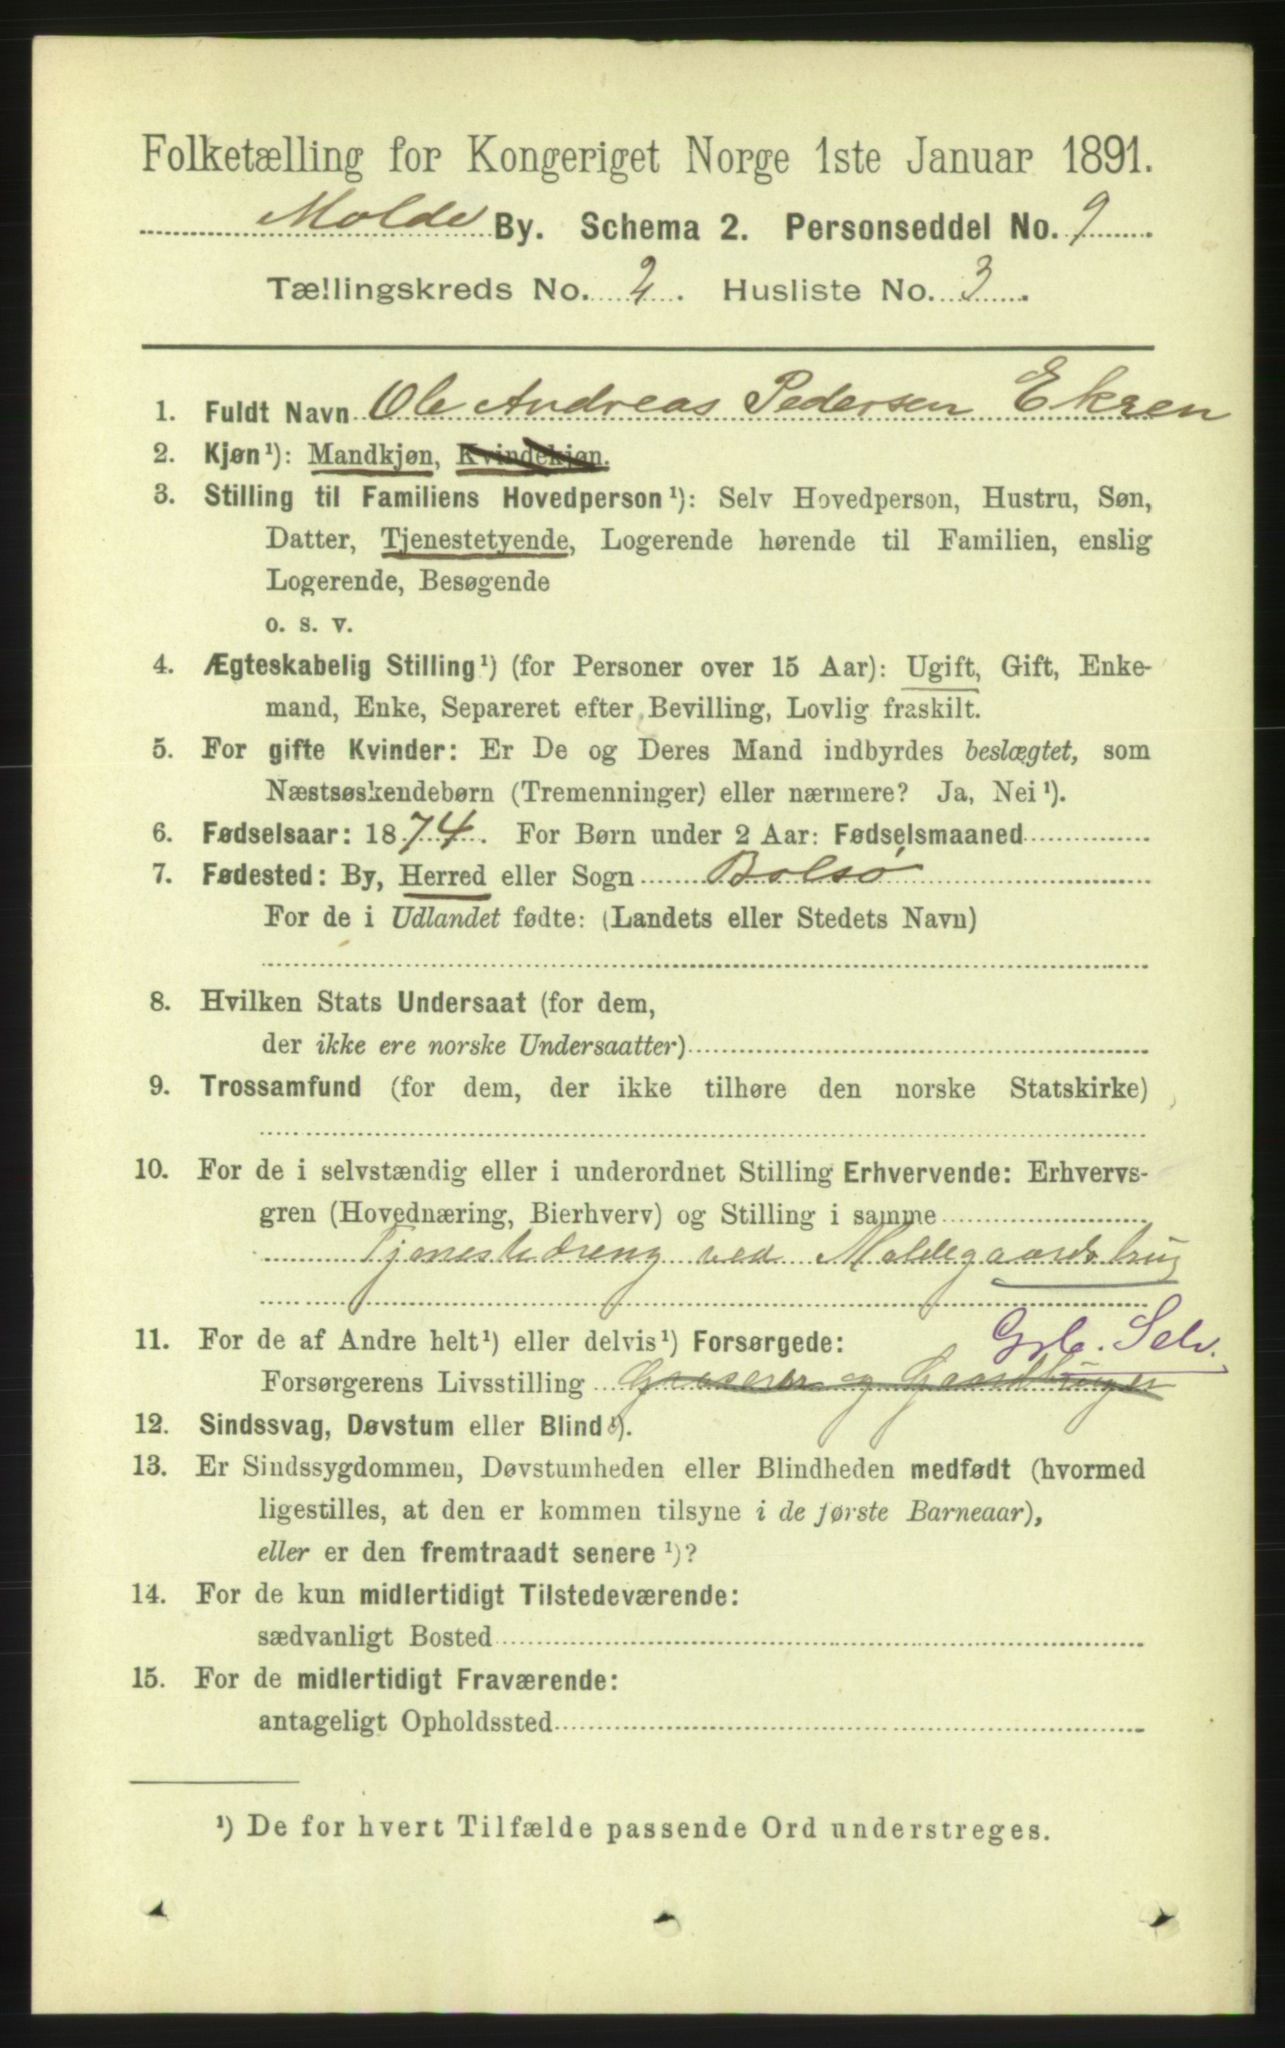 Folketælling for Kongeriget Norge 1ste Januar 1891.
Molde By. Schema 2. Personseddel No. 9
Tællingskreds No. 2. Husliste No. 3.
1. Fuldt Navn Ole Andreas Pedersen Ekren
2. Kjøn¹): Mandkjøn, Kvindekjøn.
3. Stilling til Familiens Hovedperson¹): Selv Hovedperson, Hustru, Søn,
Datter, Tjenestetyende, Logerende hørende til Familien, enslig
Logerende, Besøgende
o. s. v.
4. Ægteskabelig Stilling¹) (for Personer over 15 Aar): Ugift, Gift, Enke-
mand, Enke, Separeret efter Bevilling, Lovlig fraskilt.
5. For gifte Kvinder: Er De og Deres Mand indbyrdes beslægtet, som
Næstsøskendebørn (Tremenninger) eller nærmere? Ja, Nei¹).
6. Fødselsaar: 1874. For Børn under 2 Aar: Fødselsmaaned
7. Fødested: By, Herred eller Sogn Bolsø
For de i Udlandet fødte: (Landets eller Stedets Navn)
8. Hvilken Stats Undersaat (for dem,
der ikke ere norske Undersaatter)
9. Trossamfund (for dem, der ikke tilhøre den norske Statskirke)
10. For de i selvstændig eller i underordnet Stilling Erhvervende: Erhvervs-
gren (Hovednæring, Bierhverv) og Stilling i samme
Tjenestedreng ved Moldegaards brug
11. For de af Andre helt¹) eller delvis¹) Forsørgede:
Grb. Selv.
Forsørgerens Livsstilling og Gaardbruger
12. Sindssvag, Døvstum eller Blind¹).
13. Er Sindssygdommen, Døvstumheden eller Blindheden medfødt (hvormed
ligestilles, at den er kommen tilsyne i de første Barneaar),
eller er den fremtraadt senere¹)?
14. For de kun midlertidigt Tilstedeværende:
sædvanligt Bosted
15. For de midlertidigt Fraværende:
antageligt Opholdssted
¹) De for hvert Tilfælde passende Ord understreges.